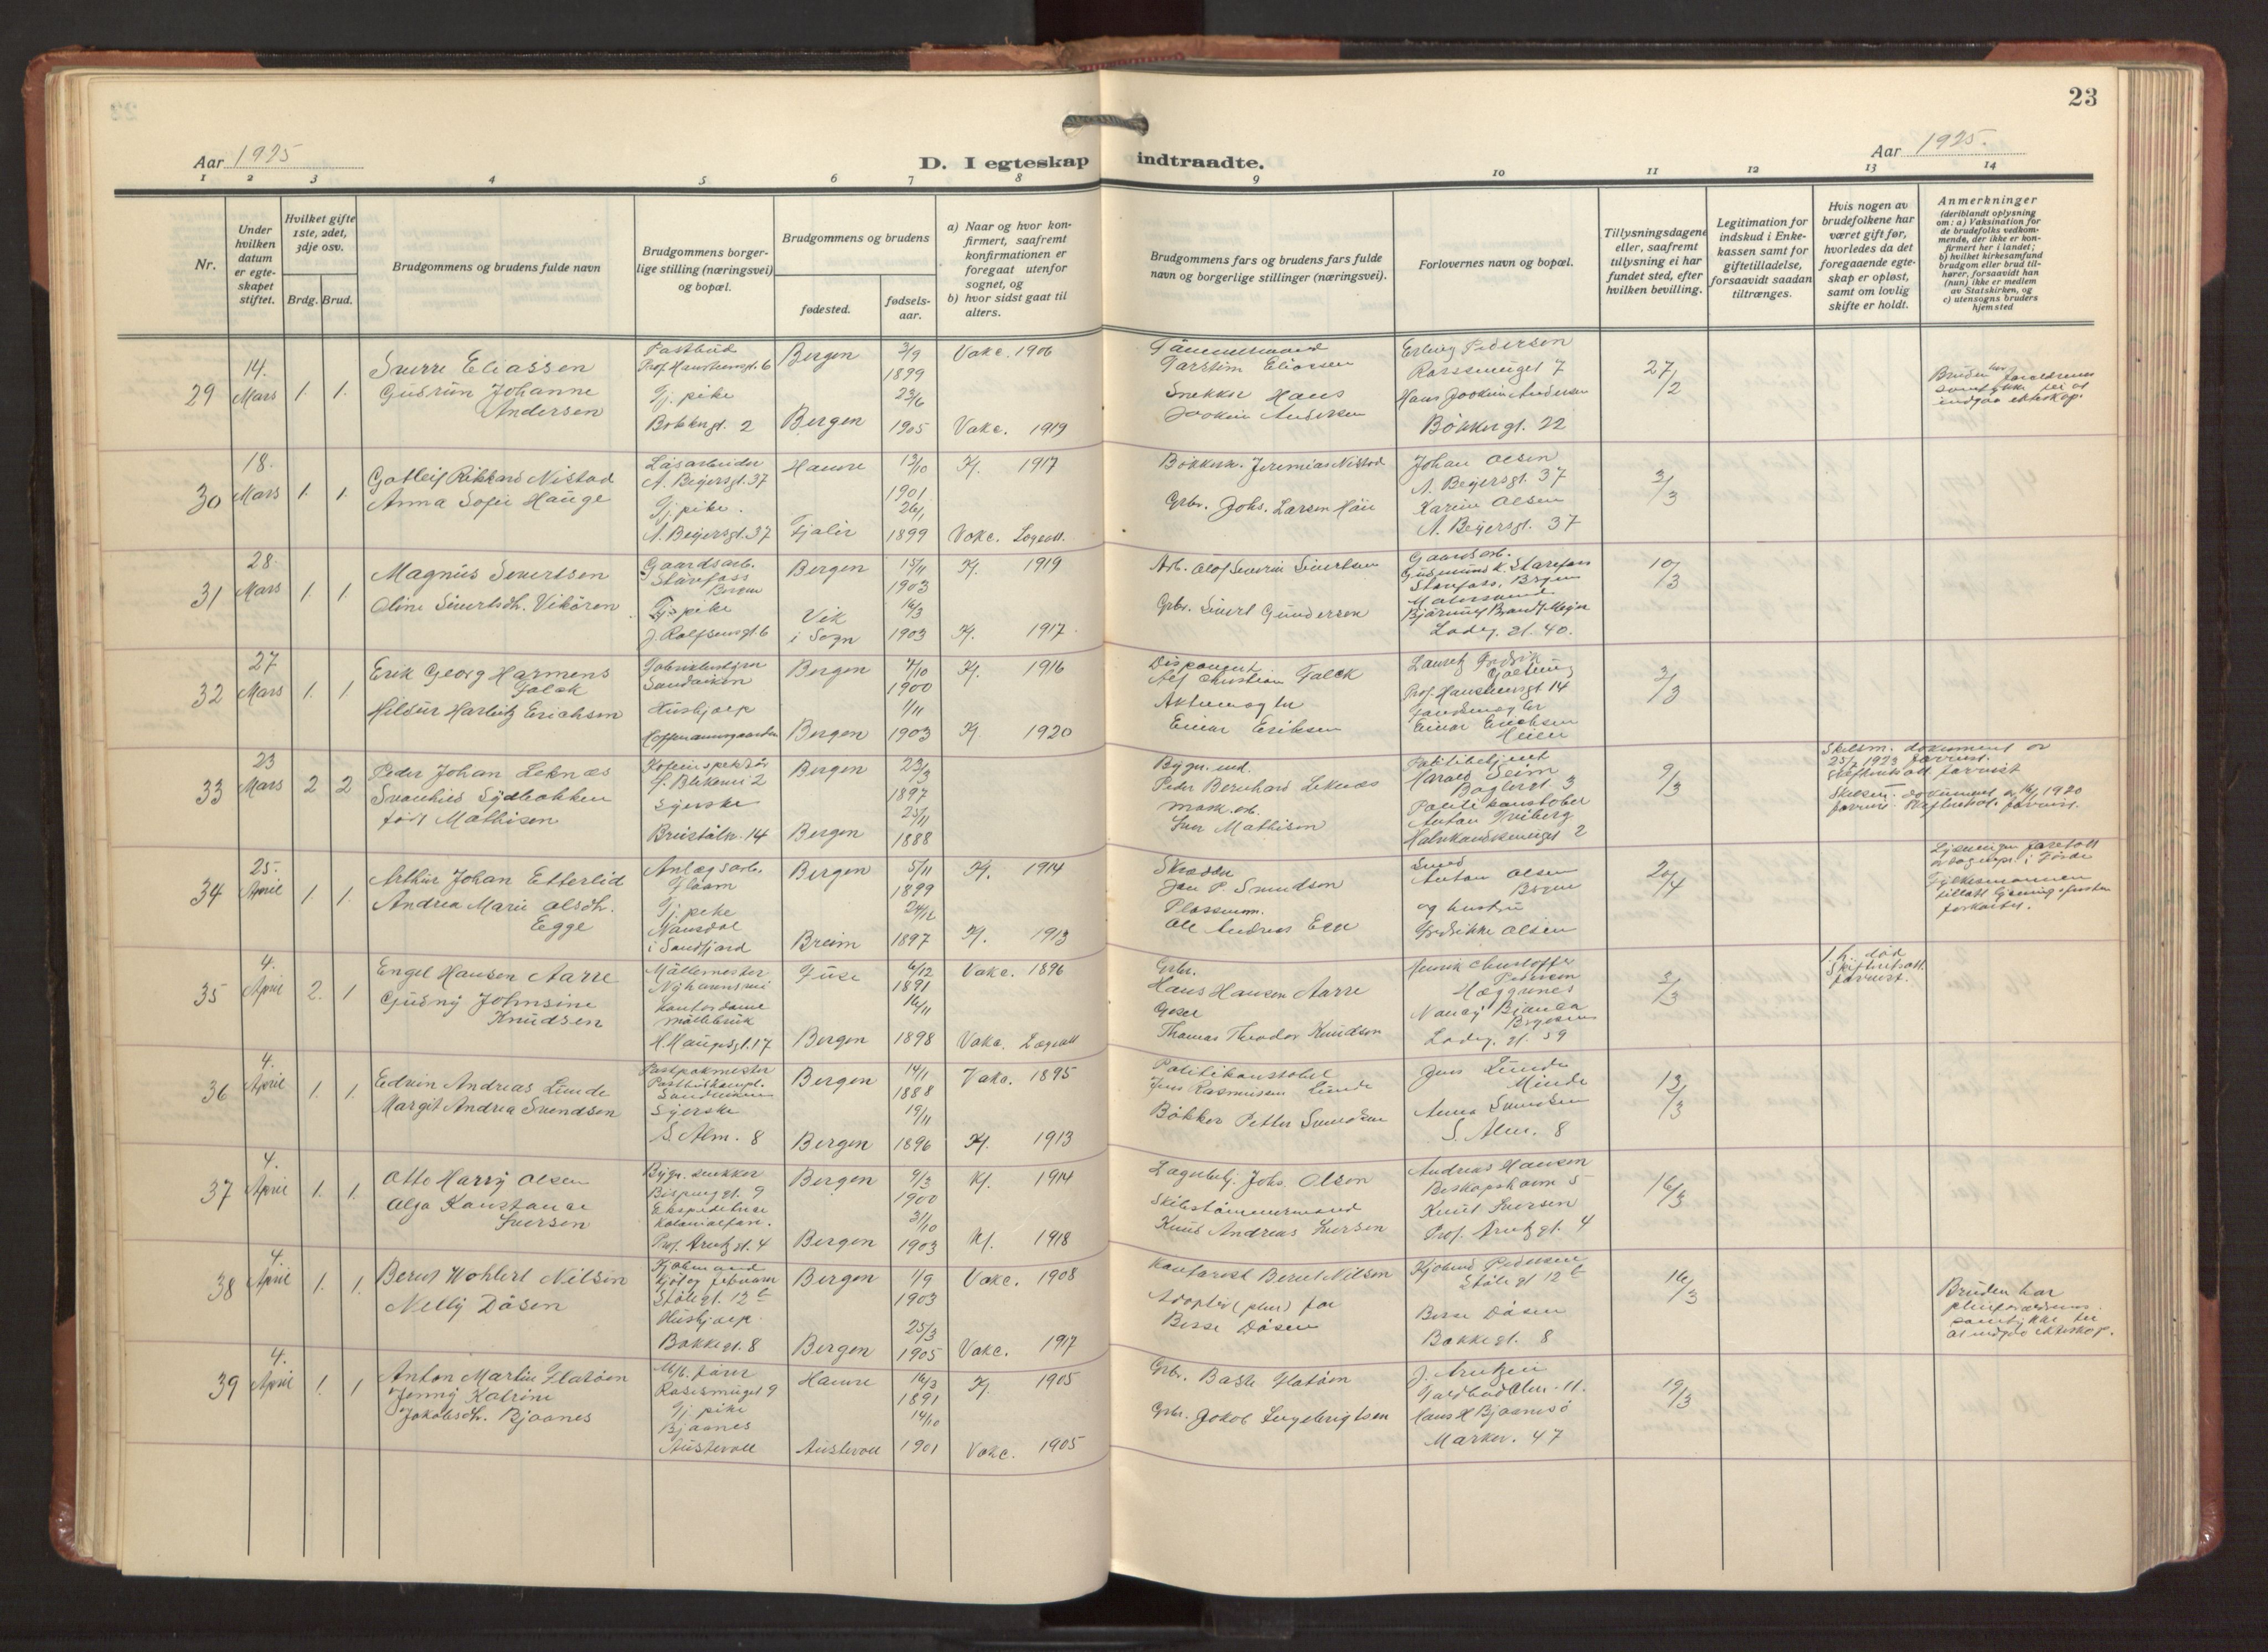 23
Aar 1925
D. I egteskap indtraadte.
Aar 1925.
1 2 3 4 5 6 7 8 9 10 11 12 13 14
Nr.
Under hvilken datum er egteskapet stiftet.
Hvilket gifte 1ste, 2det, 3dje osv.
Brdg. Brud.
Brudgommens og brudens fulde navn
Brudgommens borgerlige stilling (næringsvei) og bopæl.
Brudgommens og brudens
fødested.
fødselsaar.
a) Naar og hvor konfirmert, saafremt konfirmationen er foregaat utenfor sognet, og
b) hvor sidst gaat til alters.
Brudgommens fars og brudens fars fulde navn og borgerlige stillinger (næringsvei).
Forlovernes navn og bopæl.
Tillysningsdagene eller, saafremt tillysning ei har fundet sted, efter hvilken bevilling.
Legitimation for indskud i Enkekassen samt for giftetilladelse, forsaavidt saadan tiltrænges.
Hvis nogen av brudefolkene har været gift før, hvorledes da det foregaaende egteskap er opløst, samt om lovlig skifte er holdt.
Anmerkninger
(deriblandt oplysning om: a) Vaksination for de brudefolks vedkommende, der ikke er konfirmert her i landet; b) hvilket kirkesamfund brudgom eller brud tilhører, forsaavidt han (hun) ikke er medlem av Statskirken, og c) utensogns bruders hjemsted
29 14. Mars 1. 1.
Sverre Eliassen
Gudrun Johanne
Andersen
Postbud
Prof. Hansteensgt. 6
Tj. pike
Bøkkergt. 2
Bergen 3/9 1899 Vakc. 1906
Bergen 23/6 1905 Vakc. 1919
Tømmermand
Torstein Eliassen
Snekker Hans
Joakim Andersen
Erling Pedersen
Rossesmuget 7
Hans Joakim Andersen
Bøkkergt. 22
27/2
Bruden har forældrenes
samtykke til at
indgaa ekteskap.
30 18. Mars 1. 1.
Gotleif Rikkard Nistad
Anna Sofie Hauge
Løsarbeider
A. Beyersgt. 37
Tj. pike.
A. Beyersgt. 37
Hamre 13/10 1901 Kf. 1917
Fjaler 26/1 1899 Vakc. Lægeatt.
Bøkkerm. Jeremias Nistad
Grbr. Johs. Larsen
Johan Olsen
A. Beyersgt. 37
Karine Olsen
A. Beyersgt. 37
3/3
31 28. Mars 1. 1.
Magnus Sivertsen
Oline Sivertsdh. Vikøren
Gaardsarb.
Starefoss
Bergen
Tj. pike
J. Rolfsensgt 6
Bergen 15/11 1903 Kf. 1919
Vik
i Sogn 16/3 1903 Kf. 1917.
Arb. Olof Severin Sivertsen
Grbr. Sivert Gundersen
Gaardsarb.
Gudmund K. Starefoss
Starefoss, Bergen
Bjarne Brandt Meyer
Ladeg. gt. 40.
10/3
32 27 Mars 1. 1
Erik Georg Harmens
Falck
Hildur Harbitz Erichsen
Sandviken
Hushjælp
Hoffmannsgaarden
Bergen 4/10 1900 Kf. 1916
Bergen 1/11 1903 Kf. 1920
Disponent
Alf Christian Falck
Einar Eriksen
Lauritz Fredrik
Prof. Hansteensgt 14
Einar Erichsen
2/3
33 23 Mars 2 2
Peder Johan Leknæs
Svanhild Sydbakken
født Mathisen
Syerske
Breistølv. 14
Bergen 23/3 1897
Bergen 25/11 1888
Peder Bernhard Leknæs
Mask. arb.
Iver Mathisen
Politibetjent
Harald Seim
Baglergt. 3
Politikonstabel
Anton Hviberg
9/3
Skilsm. dokument av
25/2 1923 forevist.
Skifteatt. forevist
34 25. April 1. 1.
Arthur Johan Etterlid
Andrea Marie Olsdh.
Egge
Anlægsarb.
Flaam
Tj. pike
Naustdal
i Søndfjord
Bergen 5/11 1899 Kf. 1914
Breim 24/12 1897 Kf. 1913
Skrædder
Jon P. Svendson
Plassmm.
Ole Andreas Egge
Smed
Anton Olsen
Bergen
og hustru
Fredrikke Olsen
20/4
Lysningen foretatt
av sognepr. i Førde
Fylkesmannen
tillatt lysningsfristen
forkortet.
35 4. April 2. 1
Engel Hansen Aarre
Gudny Johnsine
Knudsen
Møllemester
Nyhavnsvei
Kontordame
Møllebruk
H. Haugsgt. 17
Fuse 6/12 1891 Vakc. 1896
Bergen 16/11 1898 Vakc. Lægeatt
Grbr.
Hans Hansen Aarre
Thomas Theodor Knudsen
Henrik Christoffer
Petersen
Hæggrenes
Nancy Bianca
Ladeg. gt. 59
2/3
1. h. død
Skifteatt.
forevist.
36 4. April 1. 1.
Edvin Andreas Lunde
Margit Andrea Svendsen
Postpakmester
Syerske
S. Alm. 8
Bergen 14/1 1888 Vakc. 1895
Bergen 19/11 1896 Kf. 1913
Politikonstabel
Jens Rasmussen Lunde
Bøkker Petter Svendsen
Jens Lunde
Minde
Anna Svendsen
S. Alm. 8
13/3
37 4. April 1. 1.
Otto Harry Olsen
Olga Konstance
Iversen
Bygn. snekker
Bispeng. gt. 9
Ekspeditrice
kolonialforr.
Prof. Arentz gt. 4
Bergen 9/3 1900 Kf. 1914
Bergen 31/10 1903 Kf. 1918
Lagerbetj. Johs. Olsen
Skibstømmermand
Knud Andreas Iversen
Andreas Hansen
Biskopshavn 5
Knut Iversen
Prof. Arentz gt. 4
16/3
38 4. April 1. 1.
Bernt Wohlert Nilsen
Nelly Døsen
Stølegt. 12b
Hushjælp.
Bakkegt. 8
Bergen 1/9 1903 Vakc. 1908
Bergen 25/3 1905 Vakc. 1917
Kontorist Bernt Nilsen
Adoptiv (pleie) far
Berge Døsen
Pedersen
Stølegt 12b
Døsen
Bakkegt. 8
16/3
Bruden har
pleieforældrenes
samtykke til
at indgaa ekteskap.
39 4. April 1. 1
Anton Martin Flatøen
Jenny Katrine
Jakobsdh. Bjaanes
Rosesmuget 9
Tj. pike
Bjaanes
Austevoll
Hamre 16/3 1891 Kf. 1905
Austevoll 14/10 1901 Vakc. 1905
Grbr. Flatøen
Grbr. Jakob Ingebrigtsen
J. Arntzen
Marken. 47
19/3